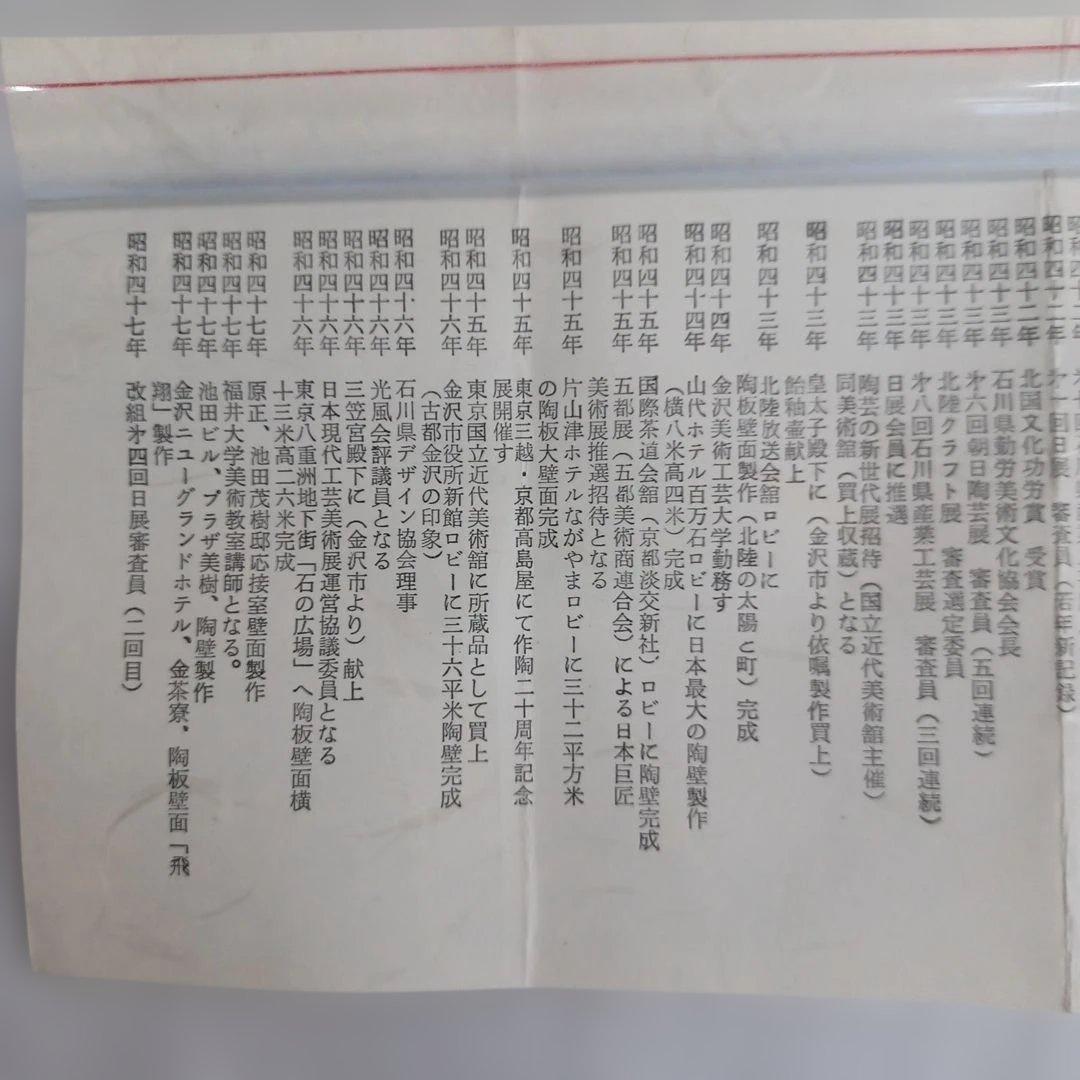 昭和四十一年 才一回日展 審査員（若年新記録）
昭和四十二年 北国文化功労賞 受賞
昭和四十三年 石川県勤労美術文化協会会長
昭和四十三年 才六回朝日陶芸展 審査員（五回連続）
昭和四十三年 北陸クラフト展 審査選定委員
昭和四十三年 才八回石川県産業工芸展 審査員（三回連続）
昭和四十三年 日展会員に推選
昭和四十三年 陶芸の新世代展招待（国立近代美術館主催）
同美術館（買上収蔵）となる
昭和四十三年 皇太子殿下に（金沢市より依嘱製作買上）
飴釉壷献上
昭和四十三年 北陸放送会舘ロビーに
陶板壁面製作（北陸の太陽と町）完成
昭和四十四年 金沢美術工芸大学勤務す
昭和四十四年 山代ホテル百万石ロビーに日本最大の陶壁製作
（横八米高四米）完成
昭和四十五年 国際茶道会舘（京都淡交新社）ロビーに陶壁完成
昭和四十五年 五都展（五都美術商連合会）による日本巨匠
美術展推選招待となる
昭和四十五年 片山津ホテルながやまロビーに三十二平方米
の陶板大壁面完成
昭和四十五年 東京三越・京都高島屋にて作陶二十周年記念
展開催す
昭和四十五年 東京国立近代美術舘に所蔵品として買上
昭和四十六年 金沢市役所新館ロビーに三十六平米陶壁完成
（古都金沢の印象）
昭和四十六年 石川県デザイン協会理事
昭和四十六年 光風会評議員となる
昭和四十六年 三笠宮殿下に（金沢市より）献上
昭和四十六年 日本現代工芸美術展運営協議委員となる
昭和四十六年 東京八重洲地下街「石の広場」へ陶板壁面横
十三米高二六米完成
昭和四十七年 原正、池田茂樹邸応接室壁面製作
昭和四十七年 福井大学美術教室講師となる。
昭和四十七年 池田ビル、プラザ美樹、陶壁製作
昭和四十七年 金沢ニューグランドホテル、金茶寮、陶板壁面「飛
翔」製作
昭和四十七年 改組才四回日展審査員（二回目）